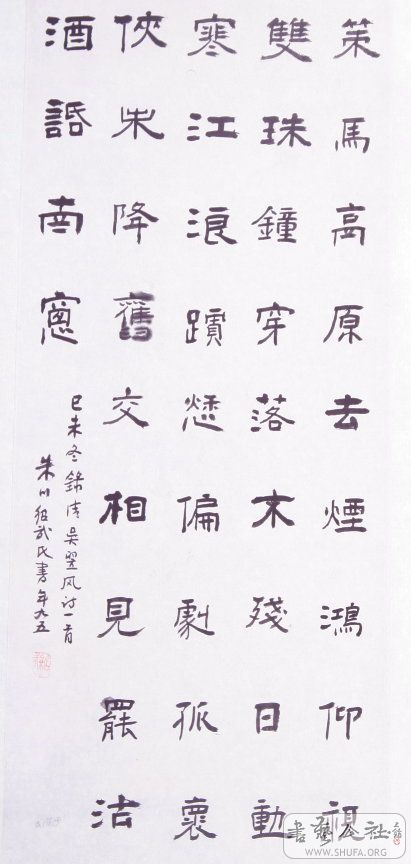 策馬高原去煙鴻仰視
雙珠鐘穿落木殘日動
寒江浪蹟愁偏劇孤褱
俠未降舊交相見罷沽
酒話南窻
己未冬錄清吳翌风诗一首
武氏書年九五
書藝公社
WWW.SHUFA.ORG